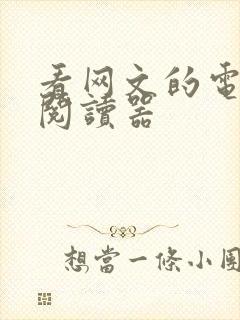 看网文的電
閱讀器
想當一條小團